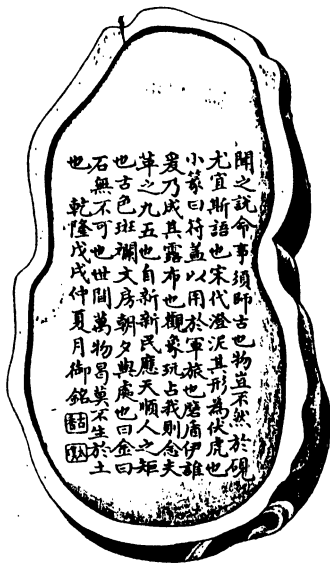 聞之說命事須師古也物豈不然於硯
尤宜斯語也宋代澄泥其形為伏虎也
小篆曰符蓋以用於軍旅也磨盾伊誰
爰乃成其露布也觀象玩占我則念夫
革之九五也自新新民應天順人之矩
也古色斑斕文房朝夕與處也曰金曰
石無不可也世間萬物曷莫不生於土
也 乾隆戊戌仲夏月御銘